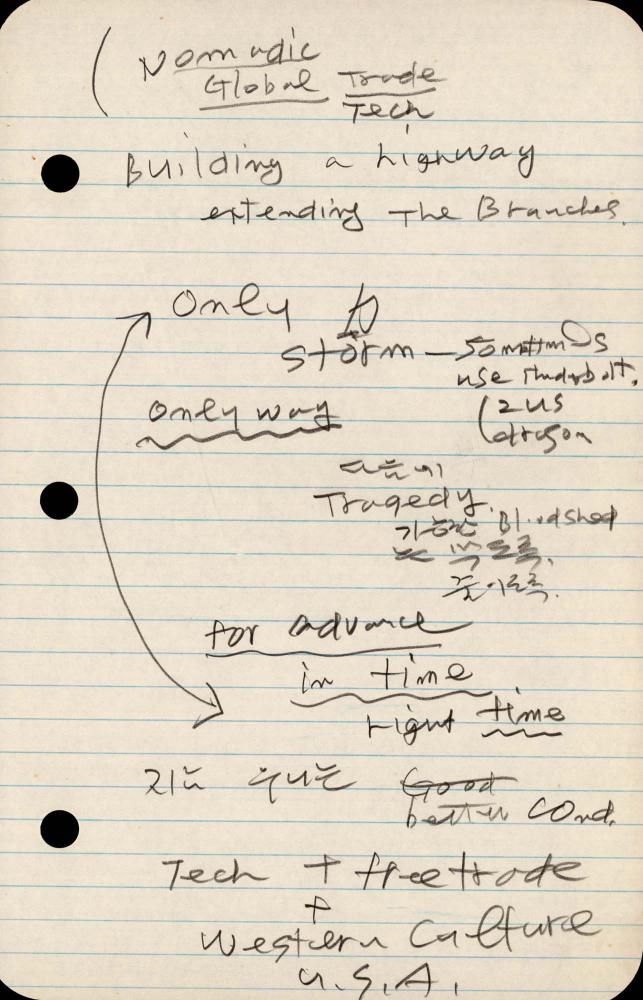 ( Nomadic
Global Trade
Tech
Building a highway
extending The Branches.
Only
storm —
use thunderbolt.
( zus
dragon
only way
다음에
Tragedy.
가능한 Bloodshed
줄이도록.
for advance
in time
right time
지금 우리는 Good
better cond.
Tech + freetrade
+
Western Culture
U.S.A.